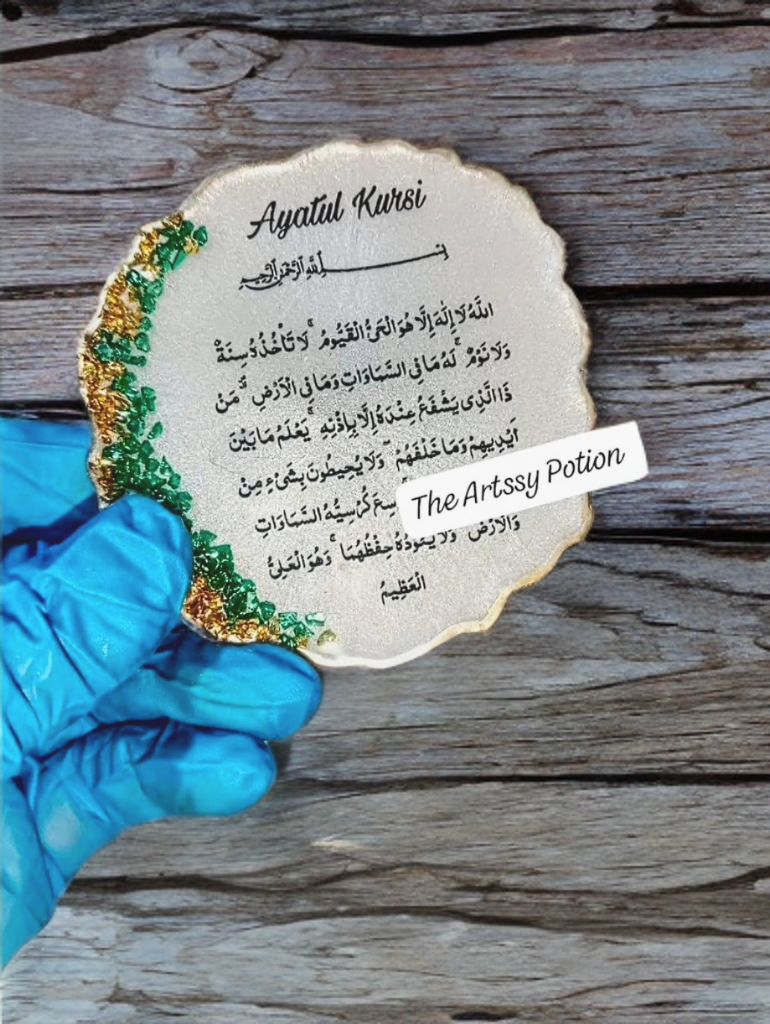 Ayatul Kursi
بسم الله الرحمن الرحيم
اللَّهُ لَا إِلَٰهَ إِلَّا هُوَ الْحَيُّ الْقَيُّومُ ۚ لَا تَأْخُذُهُ سِنَةٌ
وَلَا نَوْمٌ ۚ لَهُ مَا فِي السَّمَاوَاتِ وَمَا فِي الْأَرْضِ ۗ مَنْ
ذَا الَّذِي يَشْفَعُ عِنْدَهُ إِلَّا بِإِذْنِهِ ۚ يَعْلَمُ مَا بَيْنَ
أَيْدِيهِمْ وَمَا خَلْفَهُمْ ۖ وَلَا يُحِيطُونَ بِشَيْءٍ مِنْ
كُرْسِيُّهُ السَّمَاوَاتِ
The Artssy Potion
وَالْأَرْضَ وَلَا يَئُودُهُ حِفْظُهُمَا ۚ وَهُوَ الْعَلِيُّ
الْعَظِيمُ